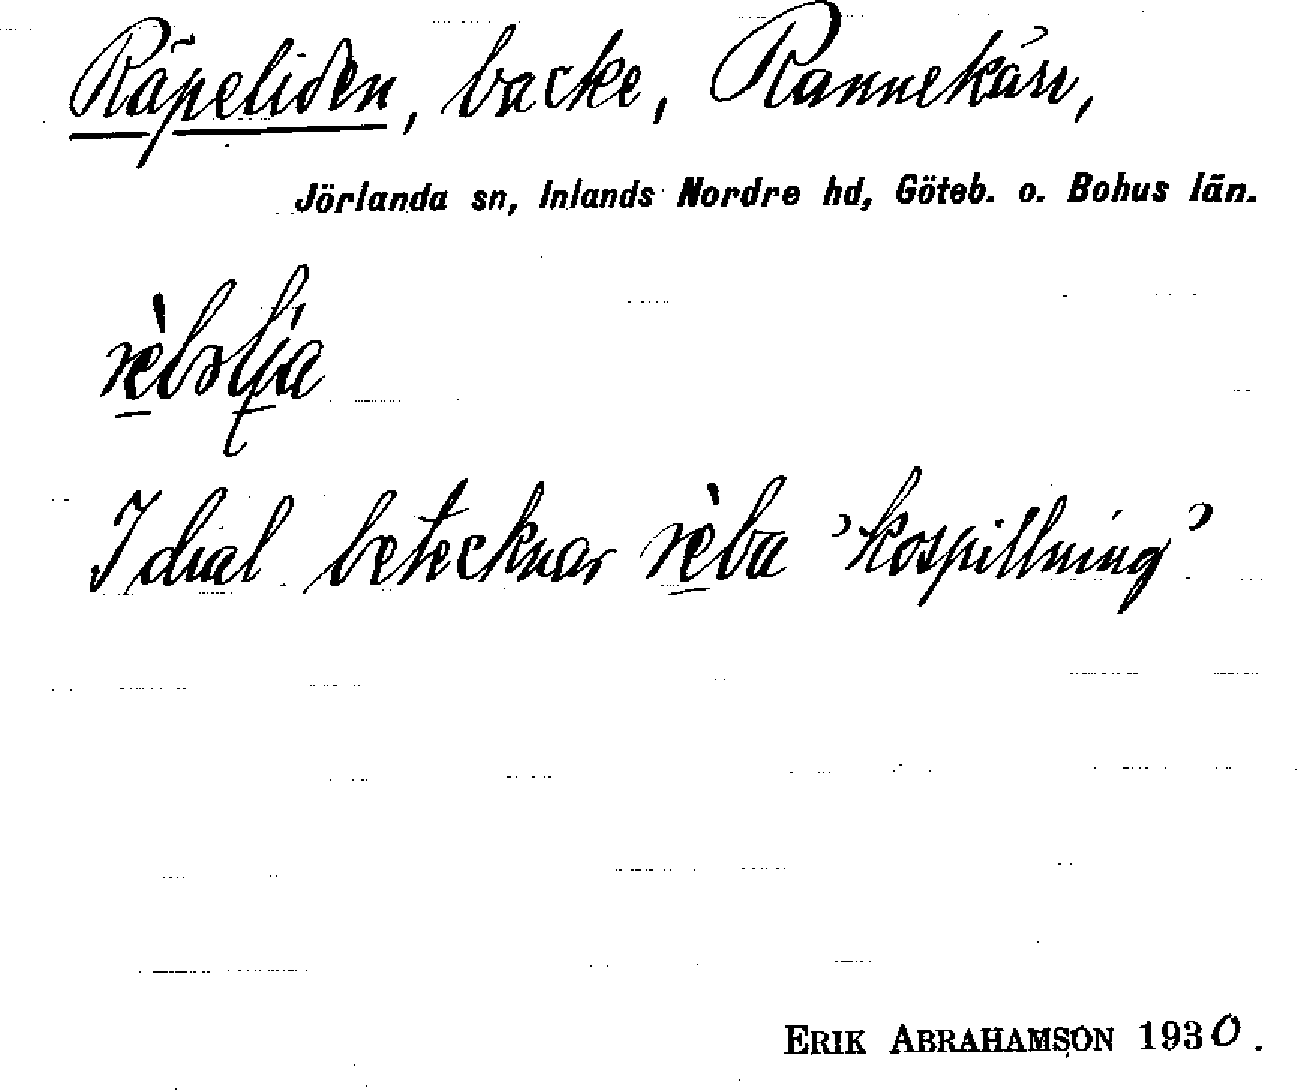 Räpeliden, backe, Rannekärr,
Jörlanda sn, Inlands Nordre hd, Göteb. o. Bohus län.
I dial betecknar rèba 'kospillning'
ERIK ABRAHAMSON 1930.